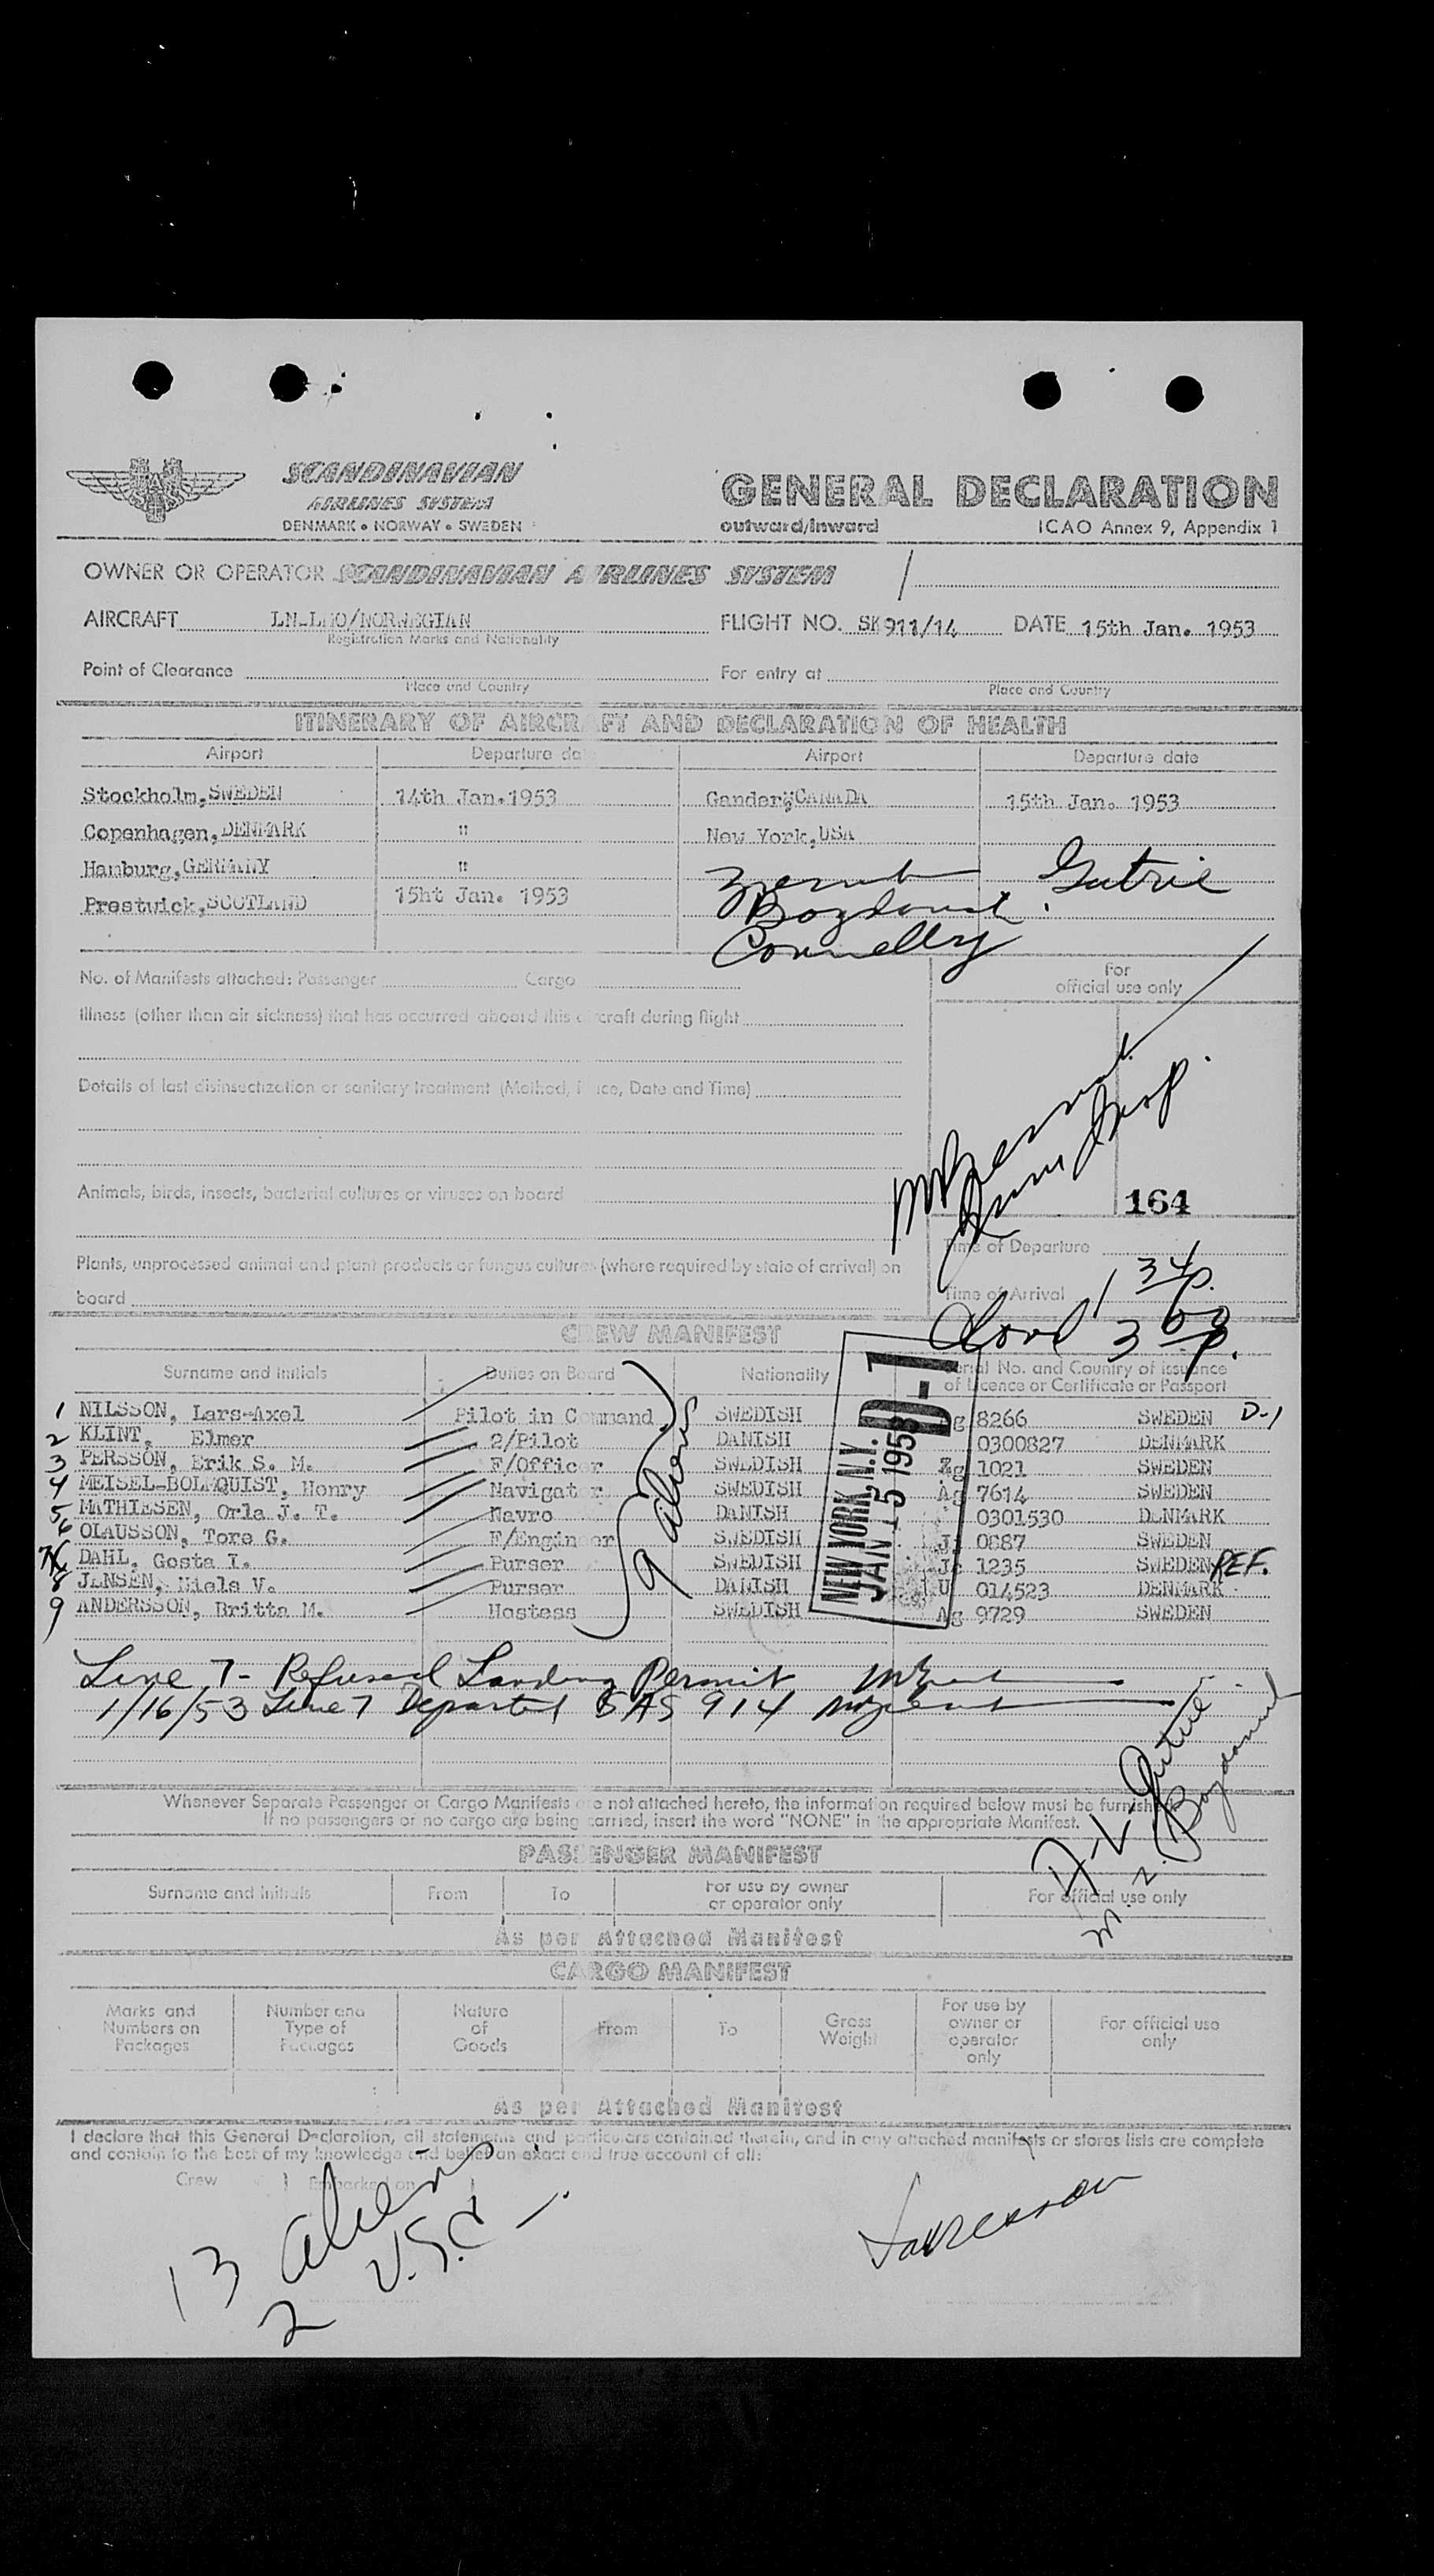 SCANDINAVIAN
AIRLINES SYSTEM
DENMARK • NORWAY • SWEDEN
GENERAL DECLARATION
outward/inward ICAO Annex 9, Appendix 1
OWNER OR OPERATOR SCANDINAVIAN AIRLINES SYSTEM
AIRCRAFT /NORWEGIAN FLIGHT NO. SK911/14 DATE 15th Jan. 1953
Registration Marks and Nationality
Point of Clearance For entry at
Place and Country Place and Country
ITINERARY OF AIRCRAFT AND DECLARATION OF HEALTH
Airport Departure date Airport Departure date
Stockholm, SWEDEN 14th Jan. 1953 Gander, CANADA 15th Jan. 1953
Copenhagen, DENMARK " New York, USA
Hamburg, GERMANY "
Prestwick, SCOTLAND 15ht Jan. 1953
Gutrie
Connelly
No. of Manifests attached: Passenger Cargo
For
official use only
Illness (other than air sickness) that has occurred aboard this aircraft during flight
Details of last disinsectization or sanitary treatment (Method, Place, Date and Time)
Animals, birds, insects, bacterial cultures or viruses on board
164
Time of Departure
Plants, unprocessed animal and plant products or fungus cultures (where required by state of arrival) on
board
Time of Arrival 1 34 p.
3 00 p.
CREW MANIFEST
Surname and Initials Duties on Board Nationality Serial No. and Country of issuance
of Licence or Certificate or Passport
1 NILSSON, Lars-Axel Pilot in Command SWEDISH Ag 8266 SWEDEN D-1
2 KLINT, Elmer 2/Pilot DANISH 0300827 DENMARK
3 PERSSON, Erik S. M. F/Officer SWEDISH Zg 1021 SWEDEN
4 MEISEL-BOLMQUIST, Henry Navigator SWEDISH Ag 7614 SWEDEN
5 MATHIESEN, Orla J. T. Navro DANISH 0301530 DENMARK
6 OLAUSSON, Tore G. F/Engineer SWEDISH 0887 SWEDEN
7 DAHL, Gosta I. Purser SWEDISH 1235 SWEDEN REF.
8 JENSEN, Niels V. Purser DANISH U 014523 DENMARK
9 ANDERSSON, Britta M. Hostess SWEDISH Ag 9729 SWEDEN
9 aliens
NEW YORK, N.Y.
JAN 15 1953
D-1
Line 7 - Refused Landing Permit
1/16/53 Line 7 Departed SAS 914
Whenever Separate Passenger or Cargo Manifests are not attached hereto, the information required below must be furnished.
If no passengers or no cargo are being carried, insert the word "NONE" in the appropriate Manifest.
PASSENGER MANIFEST
Surname and Initials From To For use by owner
or operator only For official use only
As per Attached Manifest
CARGO MANIFEST
Marks and
Numbers on
Packages Number and
Type of
Packages Nature
of
Goods From To Gross
Weight For use by
owner or
operator
only For official use
only
As per Attached Manifest
I declare that this General Declaration, all statements and particulars contained therein, and in any attached manifests or stores lists are complete
and contain to the best of my knowledge and belief an exact and true account of all:
Crew Embarked on
13 aliens
2 U.S.C.